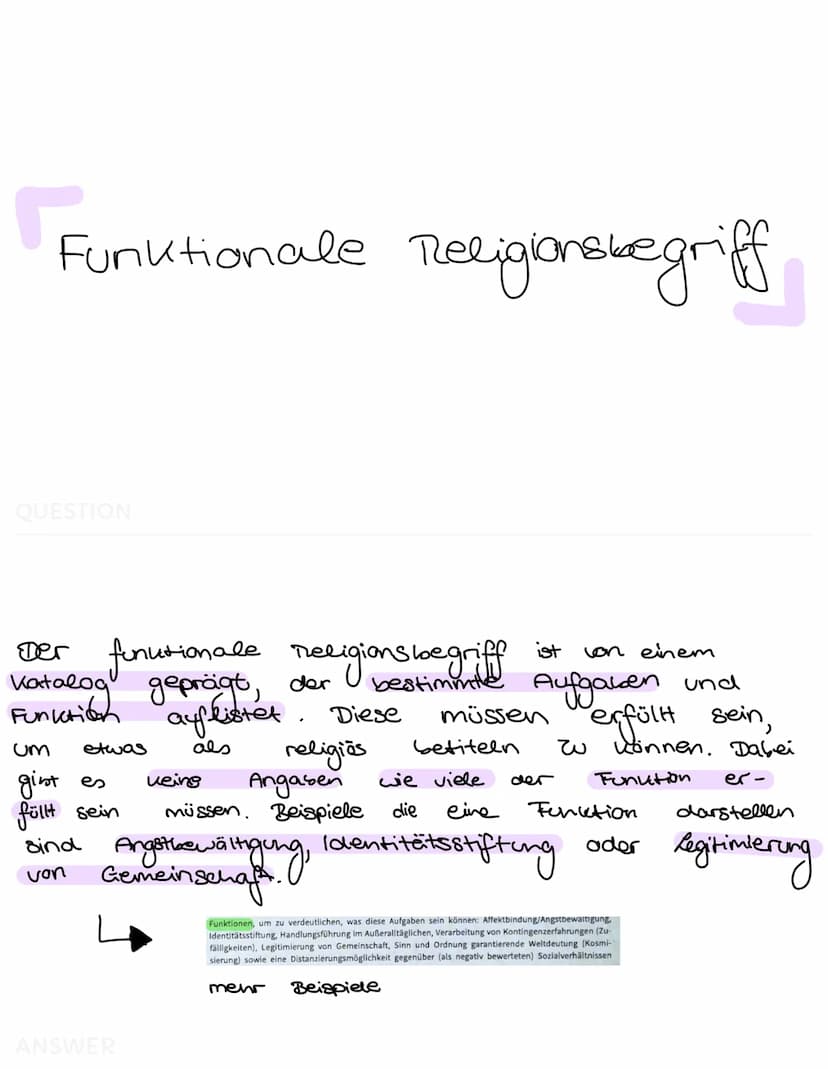 Funktionale Religionsbegriff
QUESTION
Der funktionale Religionsbegriff ist von einem
Katalog geprägt, der bestimmte Aufgaben und
Funktion auflistet. Diese müssen erfüllt sein,
um etwas als religiös betiteln zu können. Dabei
gibt es keine Angaben wie viele der Funktion er-
füllt sein müssen. Beispiele die eine Funktion darstellen
sind Angstbewältigung, Identitätsstiftung oder Legitimierung
von Gemeinschaft.
Funktionen, um zu verdeutlichen, was diese Aufgaben sein können: Affektbindung/Angstbewältigung,
Identitätsstiftung, Handlungsführung im Außeralltäglichen, Verarbeitung von Kontingenzerfahrungen (Zu-
fälligkeiten), Legitimierung von Gemeinschaft, Sinn und Ordnung garantierende Weltdeutung (Kosmi-
sierung) sowie eine Distanzierungsmöglichkeit gegenüber (als negativ bewerteten) Sozialverhältnissen
mehr Beispiele
ANSWER